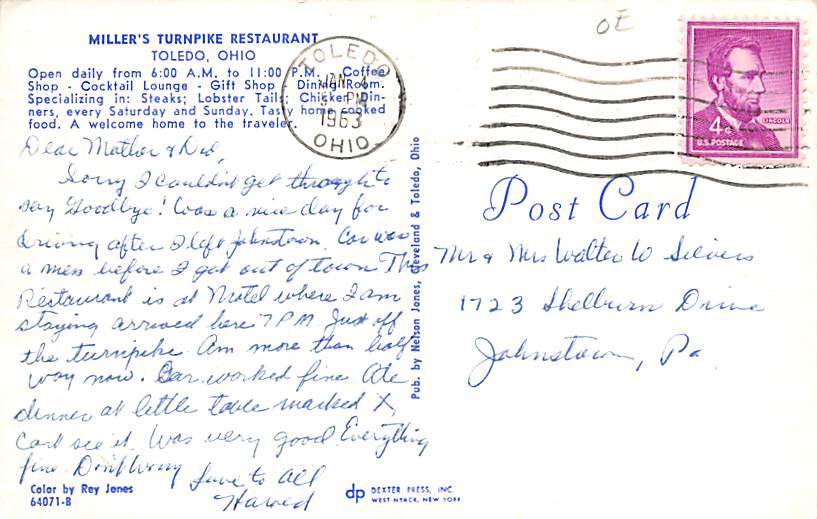 MILLER'S TURNPIKE RESTAURANT
TOLEDO, OHIO
Open daily from 6:00 A.M. to 11:00 P.M. Coffee
Shop - Cocktail Lounge - Gift Shop - Dining Room.
Specializing in: Steaks; Lobster Tails; Chicken Din-
ners, every Saturday and Sunday. Tasty home cooked
food. A welcome home to the traveler.
TOLEDO
JAN
PM
1963
OHIO
OE
4¢
LINCOLN
U.S. POSTAGE
Dear Mother & Dad,
Sorry I couldn't get through to
say Goodbye! Was a nice day for
driving after I left Johnstown. Car was
a mess before I got out of town This
Restaurant is at Motel where I am
staying arrived here 7 PM. Just off
the turnpike. Am more than half
way now. Car worked fine Ate
dinner at little table marked X,
Can't see it. Was very good. Everything
fine. Don't Worry
Love to All
Pub. by Nelson Jones, Cleveland & Toledo, Ohio
Post Card
Mr & Mrs Walter W Silvers
1723 Shelburn Drive
Johnstown, Pa.
Color by Rey Jones
64071-B
dp DEXTER PRESS, INC.
WEST NYACK, NEW YORK